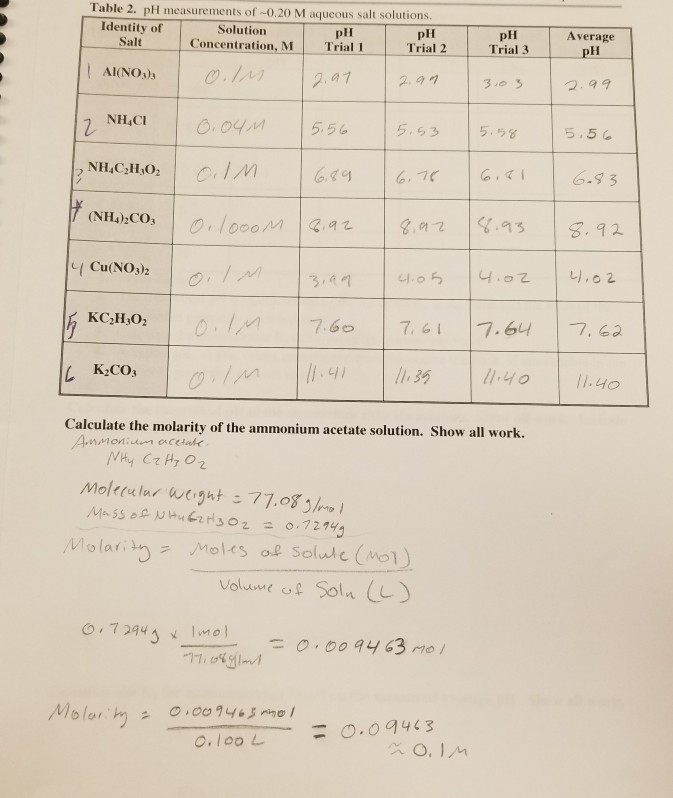 Table 2. pH measurements of ~0.20 M aqueous salt solutions.
Identity of Salt Solution Concentration, M pH Trial 1 pH Trial 2 pH Trial 3 Average pH
1 Al(NO₃)₃ 0.1M 2.97 2.97 3.03 2.99
2 NH₄Cl 0.04M 5.56 5.53 5.58 5.56
3 NH₄C₂H₃O₂ 0.1M 6.89 6.78 6.81 6.83
7 (NH₄)₂CO₃ 0.1000M 8.92 8.92 8.93 8.92
4 Cu(NO₃)₂ 0.1M 3.99 4.05 4.02 4.02
5 KC₂H₃O₂ 0.1M 7.60 7.61 7.64 7.62
6 K₂CO₃ 0.1M 11.41 11.39 11.40 11.40
Calculate the molarity of the ammonium acetate solution. Show all work.
Ammonium acetate.
NH4 C2H3O2
Molecular weight = 77.08 g/mol
Mass of NH4C2H3O2 = 0.7294g
Molarity = Moles of solute (mol)
Volume of Soln (L)
0.7294g x 1mol
77.08g/mol
= 0.009463 mol
Molarity = 0.009463 mol
0.100 L
= 0.09463
≈ 0.1M